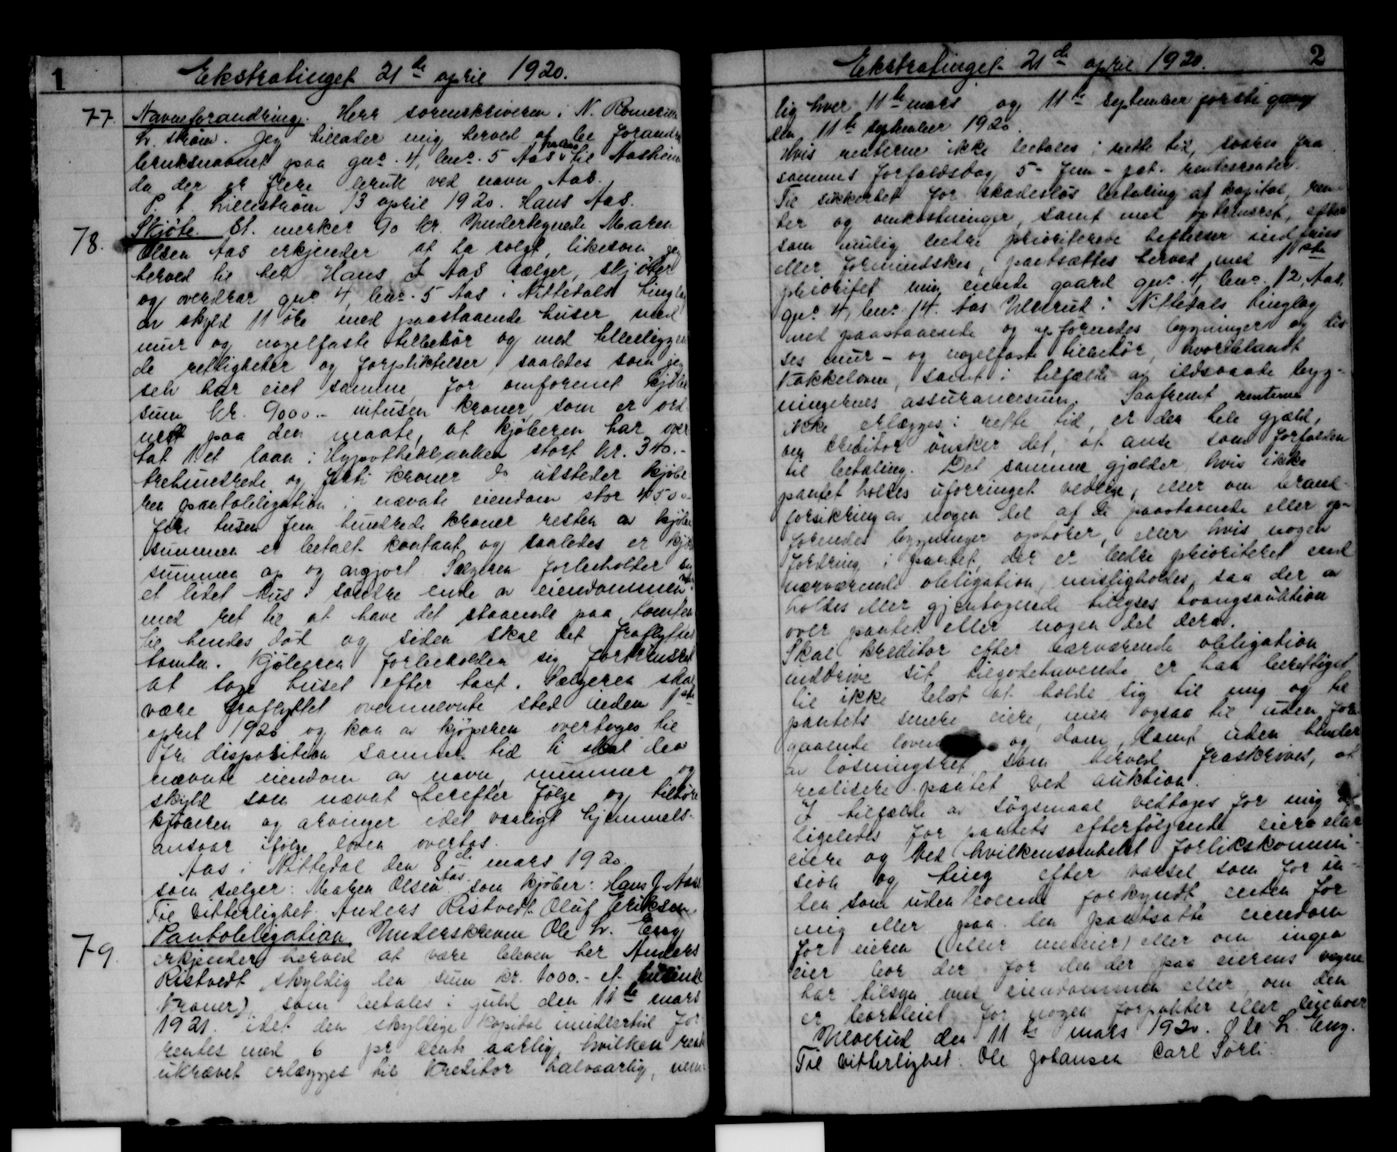 1
Ekstratinget 21de april 1920.
77 Navneforandring. Herr sorenskriveren i N. Romerike
L. strøm. Jeg tillader mig herved at be forandre
bruksnavnet paa gnr. 4, bnr. 5 Aas til Aasheim
da der er flere bruk ved navn Aas.
P. t. Lillestrøm 13 april 1920. Hans Aas.
78. Skjøte. St. merker 90 kr. Undertegnede Maren
Olsen Aas erkjender at ha solgt, likesom jeg
herved til Hans J Aas sælger, skjøter
og overdrar gnr. 4, bnr. 5 Aas i Nittedals tinglag
av skyld 11 øre med paastaaende huser med
mur og nagelfaste tilbehør og med tilliggen
de rettigheter og forpliktelser saaledes som jeg
selv har eiet samme for omforenet kjøbe
sum kr. 9000.- nitusen kroner, som er ord
net paa den maate, at kjøberen har over
tat Det laan i Hypothekbanken stort kr. 340.-
trehundrede og førti kroner utsteder kjøbe
ren pantobligation i nævnte eiendom stor 4500.-
fire tusen fem hundrede kroner resten av kjøbe
summen er betalt kontant og saaledes er kjøbe
summen op og avgjort Sælgeren forbeholder sig
et litet hus i søndre ende av eiendommen
med ret til at have det staaende paa tomten
til hendes död og siden skal det fraflyttes
tomten. Kjøberen forbeholden sig fortrinsret
at tage huset efter taxt. Sælgeren skal
være fraflyttet overnævnte sted inden 1ste
april 1920 og kan av kjøperen overtages til
fri disposition samme tid ti skal den
nævnte eiendom av navn, nummer og
skyld som nævnt herefter følge og tilhøre
kjøberen og arvinger idet vanligt hjemmels-
ansvar ifølge loven overtas.
Aas i Nittedal den 8de mars 1920
som sælger: Maren Olsen Aas som kjøber: Hans J. Aas
Til vitterlighet: Anders Ristvedt Oluf Eriksen
79. Pantobligation Underskreven Ole L. Eng
erkjender herved at være bleven her Anders
Ristvedt skyldig den sum kr. 1000.- et tusinde
kroner), som betales i juld den 11te mars
1921. idet den skyldige kapital imidlertid for-
rentes med 6 pr cent aarlig, hvilken rente
ukrævet erlægges til kreditor halvaarlig, nem-
2
Ekstratinget 21de april 1920.
lig hver 11te mars og 11te september første gang
den 11te september 1920.
Hvis renterne ikke betales i rette tid, svares fra
sammes forfaldsdag 5 - fem - pct. rentesrenter.
Til sikkerhet for skadesløs betaling af kapital, ren-
ter og omkostninger, samt med optrinsret, efter
som mulig bedre prioriterede heftelser indfries
eller formindskes, pantsættes herved med 1ste
prioritet min eiende gaard gnr. 4, bnr. 12 Aas
gnr. 4, bnr. 14. Aas Ulverud i Nittedals tinglag
med paastaaende og opførendes bygninger og dis
ses mur - og nagelfaste tilbehør, hvoriblandt
kakkelovne, samt i tilfælde av ildsvaade byg-
ningernes assurancesum. Saafremt renterne
ikke erlægges i rette tid, er den hele gjæld,
om kreditor ønsker det, at anse som forfalden
til betaling. Det samme gjælder hvis ikke
pantet holdes uforringet vedlike, eller om brand-
forsikring av nogen del af de paastaaende eller op-
førendes bygninger ophører, eller hvis nogen
fordring i pantet, der er bedre prioriteret end
nærværende obligation, misligholdes, saa der av
holdes eller gjentagende tillyses tvangsauktion
over pantet eller nogen del derav.
Skal kreditor efter nærværende obligation
inddrive sit tilgodehavende er han berettiget
til ikke blot at holde sig til mig og til
pantets senere eiere, men ogsaa til uden for
gaaende og dom, samt uden hinder
av løsningsret, som herved fraskrives, at
realisere pantet ved auktion.
I tilfælde av søgsmaal vedtages for mig og
ligeledes for pantets efterfølgende eiere eller
eiere og ved hvilkensomhelst forlikskommi-
sion og ting efter varsel som for in-
den som uden forkyndt enten for
mig eller paa den pantsatte eiendom
for eieren (eller medeier) eller om ingen
eier bor der for den der paa eierens vegne
har tilsyn med eiendommen eller om den
er bortleiet for nogen forpakter eller leieboer
Ulverud den 11te mars 1920. Ole L. Eng.
Til vitterlighet. Ole Johansen Carl Sørli